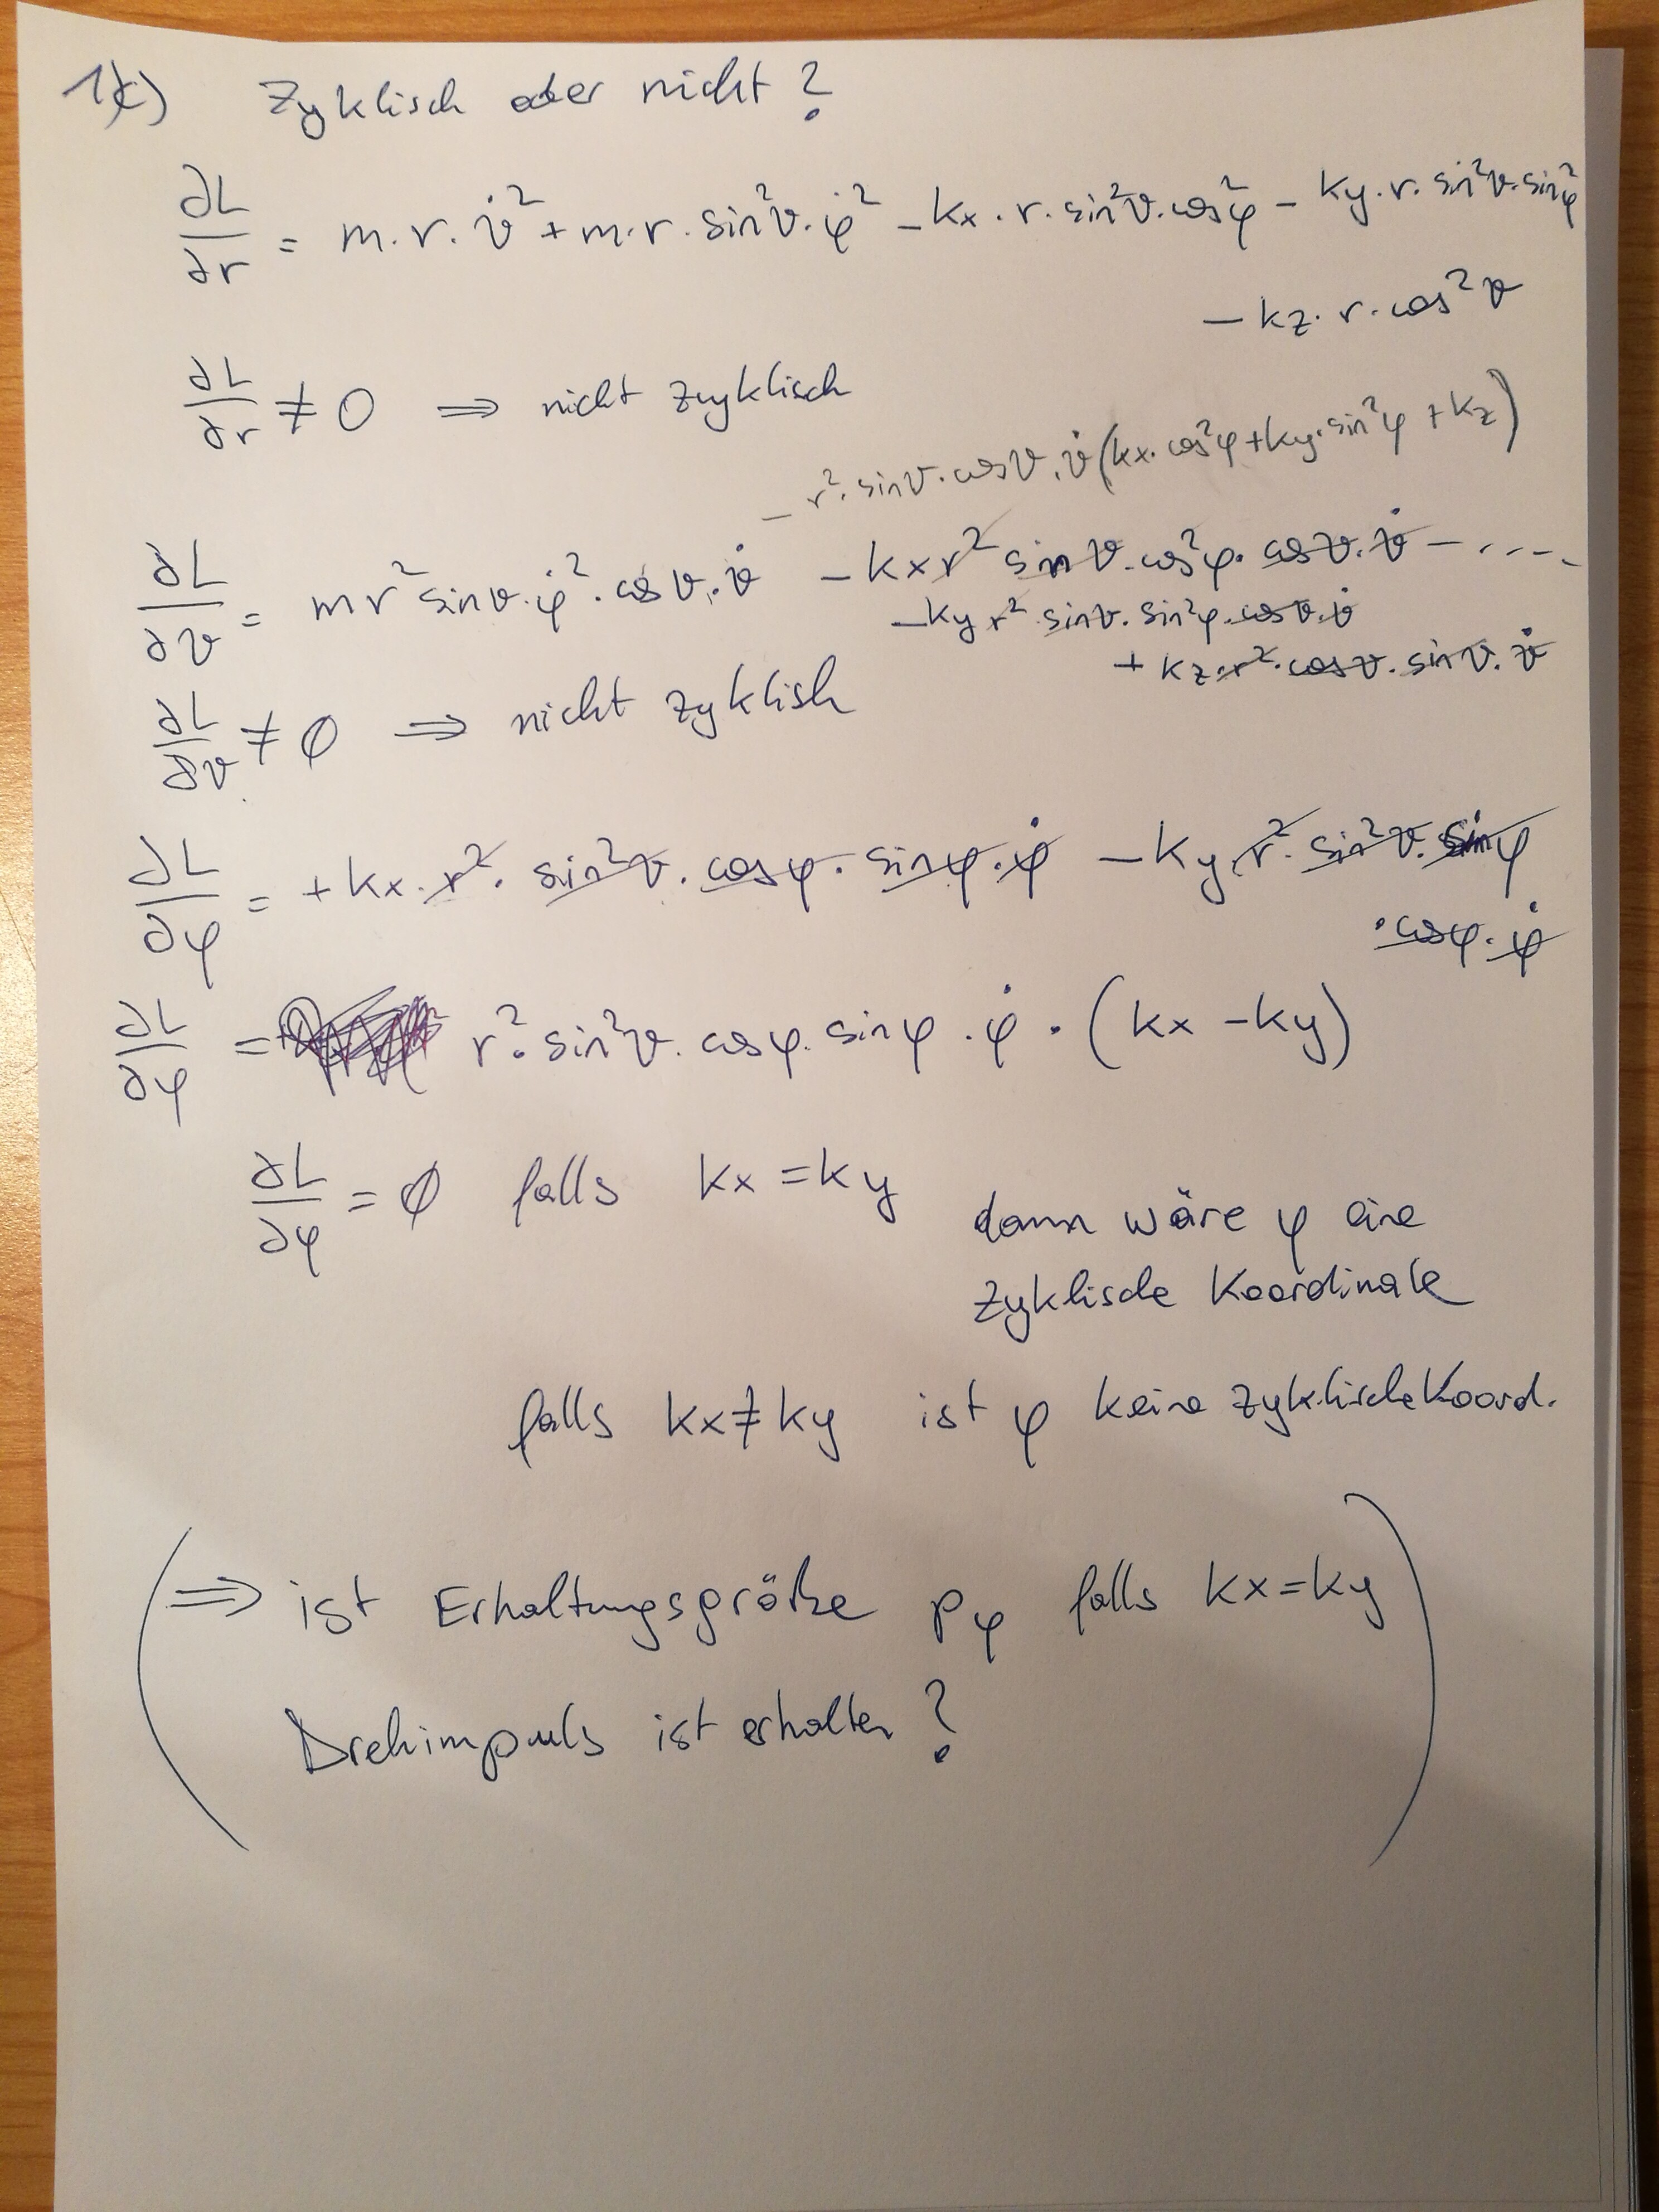 1c) Zyklisch oder nicht?
∂L/∂r = m·r·ϑ̇² + m·r·sin²ϑ·φ̇² - kx·r·sin²ϑ·cos²φ - ky·r·sin²ϑ·sin²φ
- kz·r·cos²ϑ
∂L/∂r ≠ 0 ⇒ nicht zyklisch
- r²·sinϑ·cosϑ·ϑ̇(kx·cos²φ+ky·sin²φ+kz)
∂L/∂ϑ = mr²sinϑ·φ̇²·cosϑ·ϑ̇ - kxr²sinϑ·cos²φ·cosϑ·ϑ̇ - ....
- kyr²·sinϑ·sin²φ·cosϑ·ϑ̇
+ kz·r²·cosϑ·sinϑ·ϑ̇
∂L/∂ϑ ≠ 0 ⇒ nicht zyklish
∂L/∂φ = + kx·r²·sin²ϑ·cosφ·sinφ·φ̇ - ky·r²·sin²ϑ·sinφ
·cosφ·φ̇
∂L/∂φ = r²·sin²ϑ·cosφ·sinφ·φ̇·(kx - ky)
∂L/∂φ = 0 falls kx = ky
dann wäre φ eine
zyklische Koordinate
falls kx ≠ ky ist φ keine zyklische Koord.
(⇒ ist Erhaltungsgröße pφ falls kx = ky
Drehimpuls ist erhalten?)